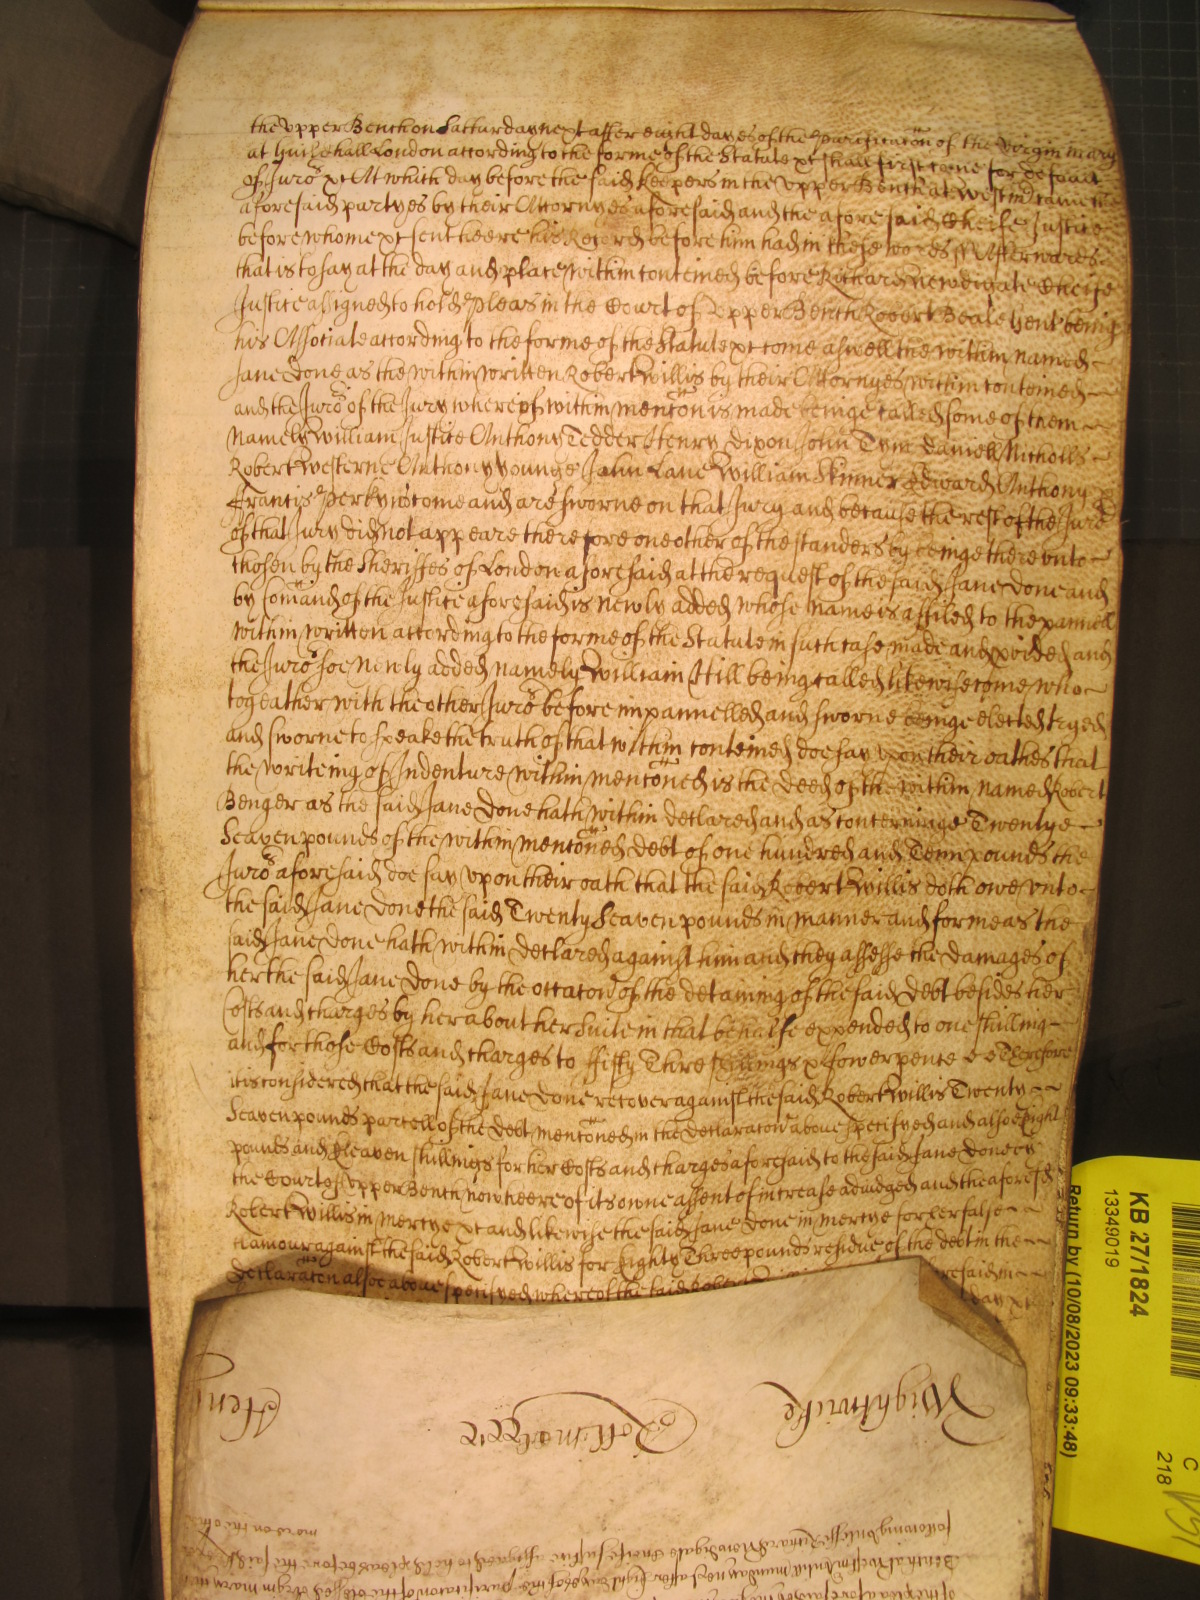 the Upper Bench on Satturday next after eight dayes of the Purificacon of the Virgin Mary
at Guildhall London according to the forme of the Statute xt shall first come for default
of Juro xt At which day before the said Keepers in the Upper Bench at Westm came the
aforesaid partyes by their Attornyes aforesaid and the aforesaid Cheife Justice
before whome xt sent heere his Record before him had in these words Afterwards
that is to say at the day and place within conteined before Richard Newdigate Cheife
Justice assigned to hold Pleas in the Court of Upper Bench Robert Beale Gent being
his Associate according to the forme of the Statute xt come aswell the within named
Jane Done as the within written Robert Willis by their Attornyes within conteined
and the Juro of the Jury whereof within mencon is made beinge called some of them
Namely William Justice Anthony Tedder Henry Dixon John Tym Daniell Nicholls
Robert Westerne Anthony younge John Lane William Skinner Edward Anthony
Francis Perkyns come and are sworne on that Jury and because the rest of the Juro
of that Jury did not appeare therefore one other of the standers by beinge there unto
chosen by the Sheriffes of London aforesaid at the request of the said Jane Done and
by Comand of the Justice aforesaid is newly added whose name is affiled to the pannell
within written according to the forme of the Statute in such case made and pvided and
the Juro soe newly added namely William Hill being called likewise come who
togeather with the other Juro before impannelled and sworne beinge elected tryed
and sworne to speake the truth of that within conteined doe say upon their oathes that
the writeing of Indenture within menconed is the deed of the within named Robert
Benger as the said Jane Done hath within declared and as concerninge Twentye
Seaven pounds of the within menconed debt of one hundred and Tenn pounds the
Juro aforesaid doe say upon their oath that the said Robert Willis doth owe unto
the said Jane Done the said Twenty Seaven pounds in manner and forme as the
said Jane Done hath within declared against him and they assesse the damages of
her the said Jane Done by the occacon of the detaining of the said debt besides her
Costs and charges by her about her Suite in that behalfe expended to one shilling
and for those Costs and charges to fifty Three shillings & fower pence Therefore
it is considered that the said Jane Done recover against the said Robert Willis Twenty
Seaven pounds parcell of the debt menconed in the declaracon above specifyed and alsoe Eight
pounds and Eleaven shillings for her Costs and charges aforesaid to the said Jane Done by
the Court of Upper Bench now heere of its owne assent of increase adiudged and the aforesd
Robert Willis in mercye xt and likewise the said Jane Done in mercye for her false
clamour against the said Robert Willis for Eighty Three pounds residue of the debt in the
declaracon alsoe above specifyed whereof the said Robert
day xt
Wightwicke
Rolls
KB 27/1824
13349019
Return by (10/08/2023 09:33:48)
C
218
more on the other
following unlesse Richard Newdigate Cheife Justice assigned to hold pleas before the said